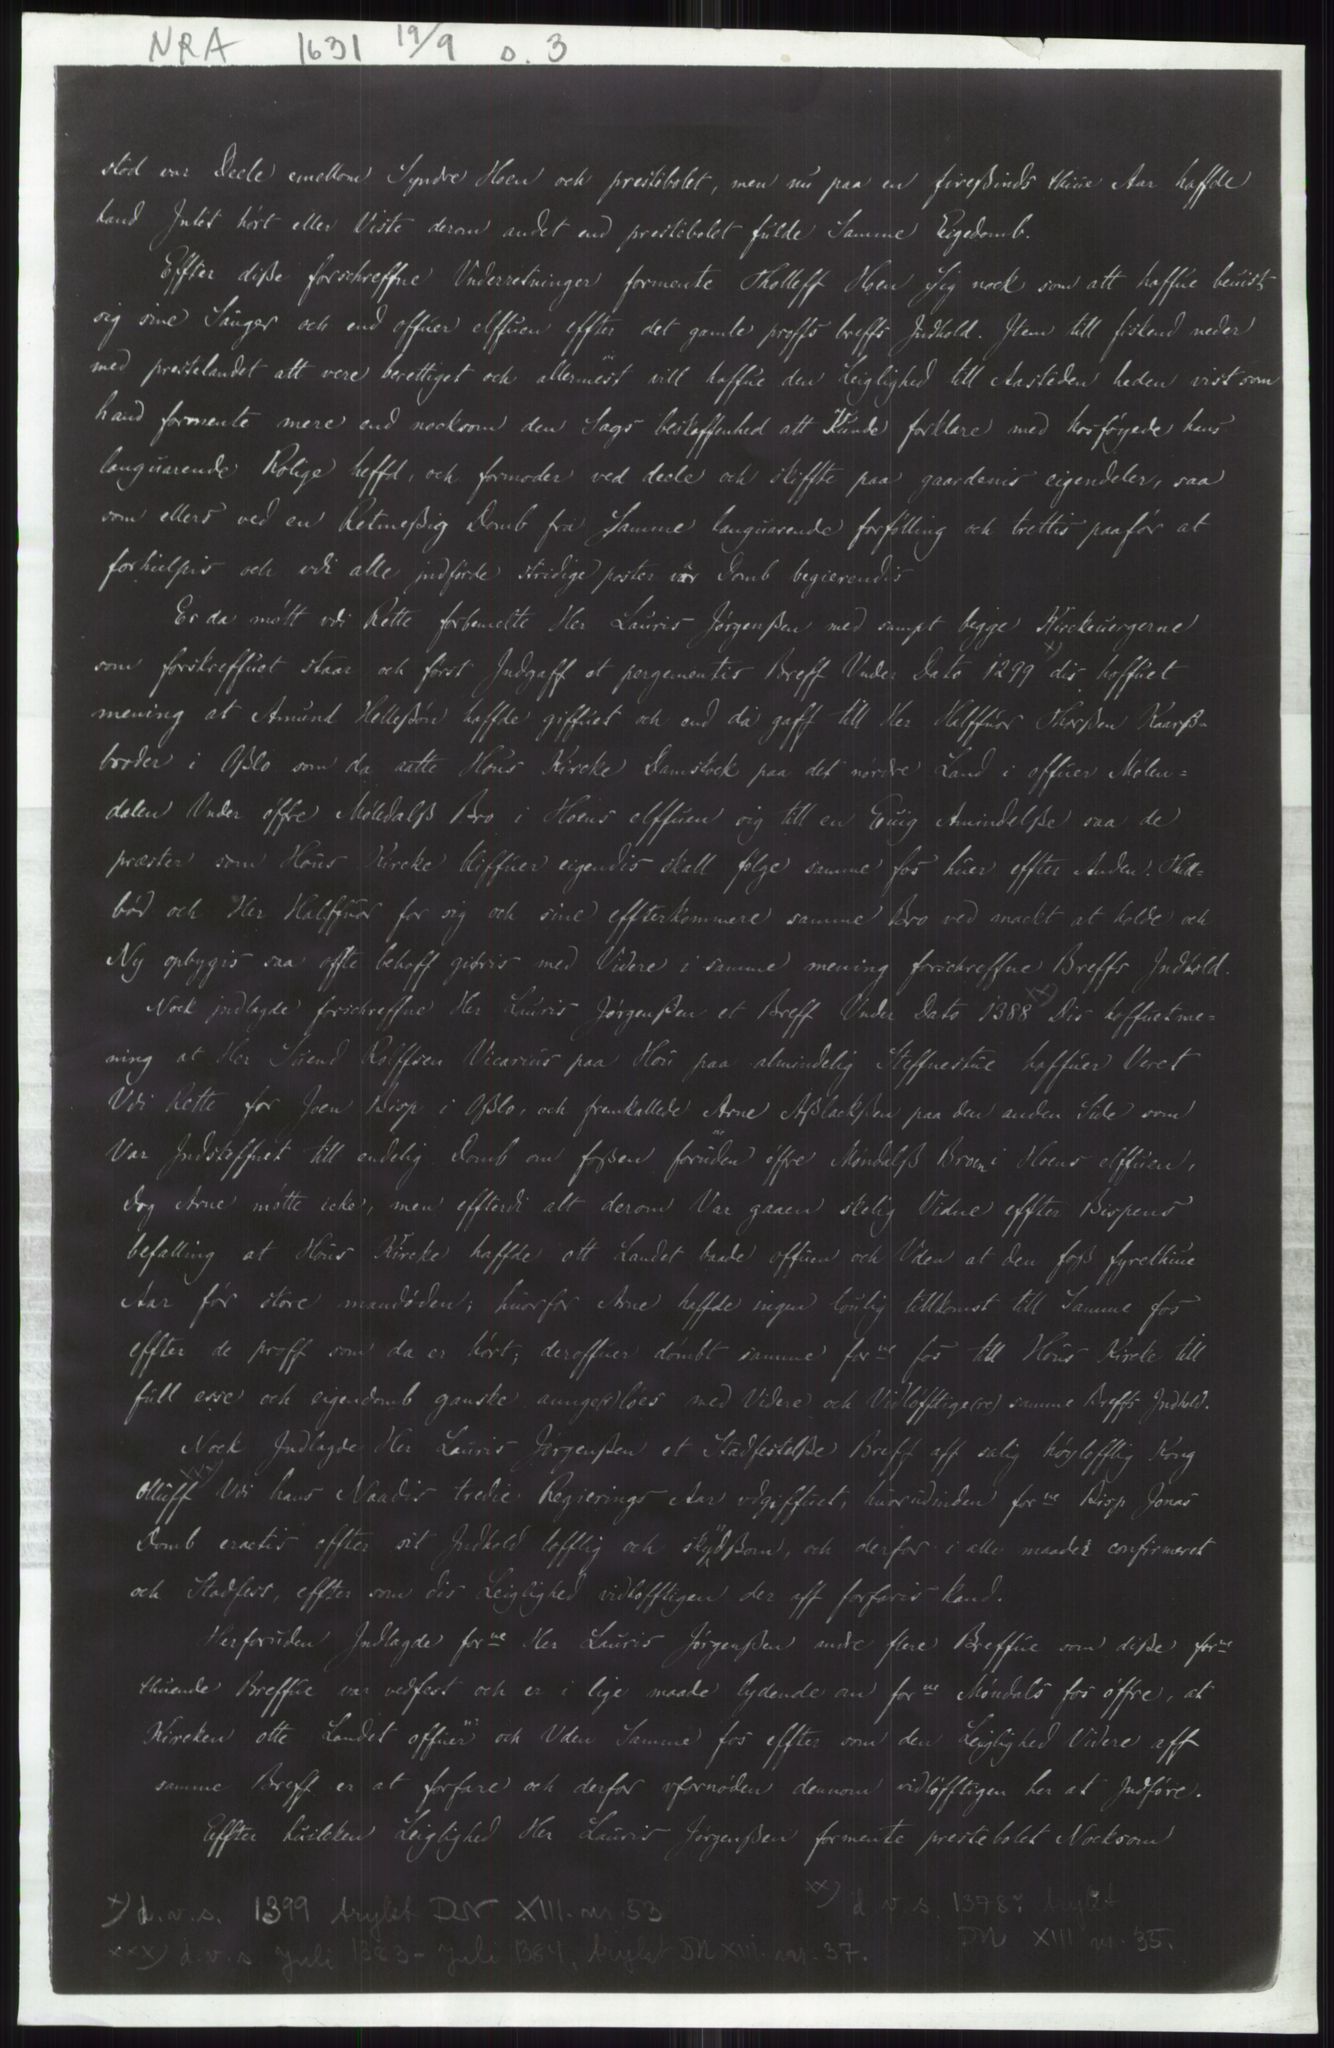 NRA 1631 19/9 s. 3
stød var Deele emellom Syndre Hoen och prestebolet, men nu paa en fireßinds thiue Aar haffde
hand Intet hørt eller Viste derom andet end prestebolet fulde Samme Eigedomb.
Effter diße forschreffne Underretninger formente Tholleff Hoen sig nock som att haffue beuist
sig sine Sauger och end offuer elffuen effter det gamle proffs breffs Indhold. Item till fiskend neder
med prestelandet att vere berettiget och allermest vill haffue den Leiglighed till Aasteden heden vist som
hand formente mere end nocksom den Sags beskaffenhed att Kunde forklare med hosføyede hans
languarende Rolige heffd, och formoder ved deele och skiffte paa gaardenis eigendeler, saa
som ellers ved en Retmeßig Domb fra Samme languarende forfølling och trettis paafør at
forhielpis och vdi alle indførde stridige poster vor Domb begierendis
Er da møtt vdi Rette forbemelte Her Lauris Jørgenßen med sampt begge Kirckeuergerne
som forskreffuet staar och først Indgaff et pergementis Breff Under Dato 1299 x) dis hoffuet
mening at Amund Helleßøn haffde giffuet och end da gaff till Her Halffuor Thorßen Kaarß-
broder i Oßlo som da aatte Hous Kircke Damstock paa det nordre Land i offuer Mølen=
dalen Under øffre Mølledalß Bro i Hoens elffuen sig till en Euig Amindelße saa de
præster som Hous Kircke bliffuer eigendis skall følge samme fos huer effter Anden.
bød och Her Halffuor for sig och sine effterkommere samme Bro ved mackt at holde och
Ny opbygis saa offte behoff giøris med Videre i samme mening forschreffne Breffs Indhold.
Nock indlagde forschreffne Her Lauris Jørgenßen et Breff Under Dato 1388 xx) Dis hoffuet me=
ning at Her Suend Rolffsen Vicarius paa Hou paa almindelig Steffnestue haffuer Veret
Vdi Rette for Joen Bisp i Oßlo, och fremkallede Arne Aßlackßen paa den anden Side som
Var Indsteffnet till endelig Domb om foßen foruden øffre Møndalß Broen i Hoens elffuen,
dog Arne møtte icke, men effterdi att derom Var gaaen skelig Vidne effter Bispens
befalling at Hous Kircke haffde ott Landet baade offuen och Uden at den foß fyrethiue
Aar før store mandøden; huorfor Arne haffde ingen loulig tillkomst till Samme fos
effter de proff som da er hørt; deroffuer dømbt samme forne fos till Hous Kircke till
full esse och eigendomb ganske aunge(r)loes med Videre och Vidløfftige(re) samme Breffs Indhold.
Nock Indlagde Her Lauris Jørgenßen et Stadfestelße Breff aff salig høylofflig Kong
Olluff xxx) Vdi hans Naadis tredie Regierings Aar vdgiffuet, huorudinden forne Bisp Jonas
Domb eractis effter sit Indhold lofflig och skydßom, och derfor i alle maader confirmeret
och Stadfest, effter som dis Leiglighed vidløfftigen der aff forfaris kand.
Herforuden Indlagde forne Her Lauris Jørgenßen andre flere Breffue som diße forne
thuende Breffue var vedfest och er i lige maade lydende om forne Møndals fos øffre, at
Kircken otte Landet offuen och Uden Samme fos effter som den Leiglighed Videre aff
samme Breff er at forfare och derfor vfornøden dennom vidløfftigen her at Indføre.
Effter huilcken Leiglighed Her Lauris Jørgenßen formente prestebolet Nocksom
x) d.v.s. 1399 trykt DN XIII. nr. 53
xx) d.v.s. 1378, trykt
DN XIII nr. 35.
xxx) d.v.s. Juli 1383 - Juli 1384, trykt DN XIII. nr. 37.